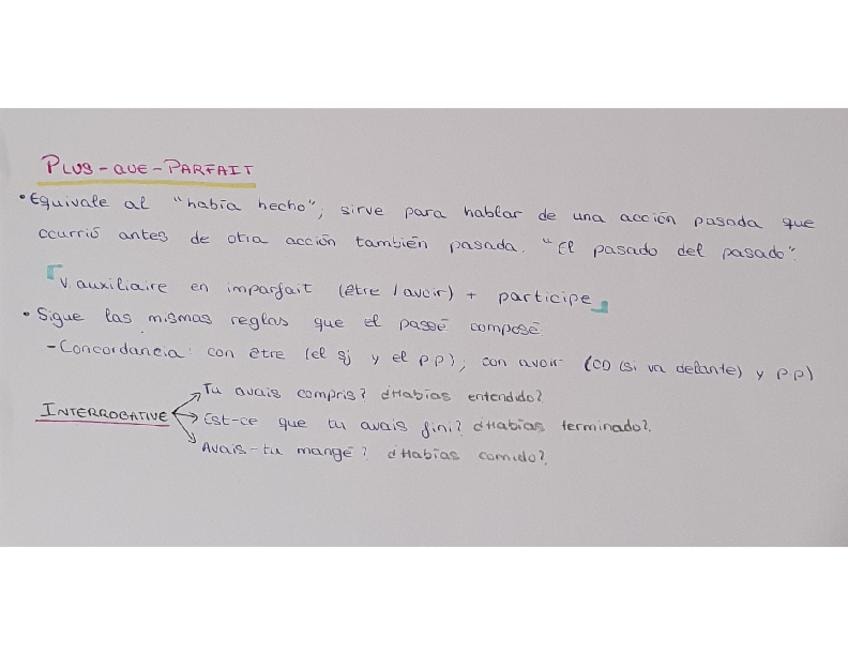 PLUS-QUE-PARFAIT
• Equivale al "había hecho"; sirve para hablar de una acción pasada que
ocurrió antes de otra acción también pasada. "El pasado del pasado".
V. auxiliaire en imparfait (être / avoir) + participe
• Sigue las mismas reglas que el passé composé.
- Concordancia: con être (el sj y el p.p); con avoir (CD (si va delante) y p.p)
Tu avais compris? ¿Habías entendido?
INTERROGATIVE Est-ce que tu avais fini? ¿Habías terminado?
Avais-tu mangé? ¿Habías comido?